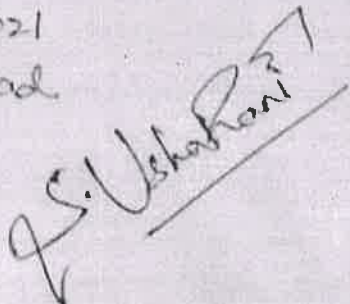 21
ad
S. Usha Rani